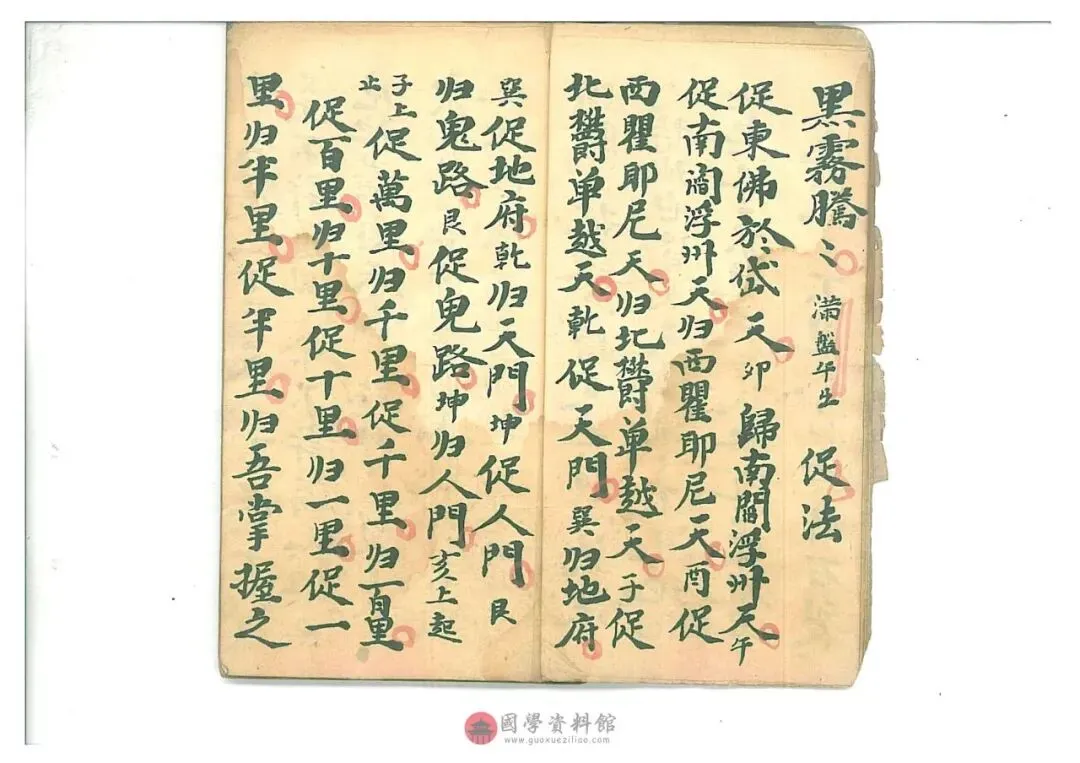 黒霧騰〻 満盤午出 促法
促東佛於岱天卯歸南閻浮州天午
促南閻浮州天归西瞿耶尼天酉促
西瞿耶尼天归北欝单越天子促
北欝单越天乹促天門巽归地府
巽促地府乹归天門坤促人門艮
归鬼路艮促鬼路坤归人門亥上起
子上止促萬里归千里促千里归百里
促百里归十里促十里归一里促一
里归半里促半里归吾掌握之
國學資料館
www.guoxueziliao.com